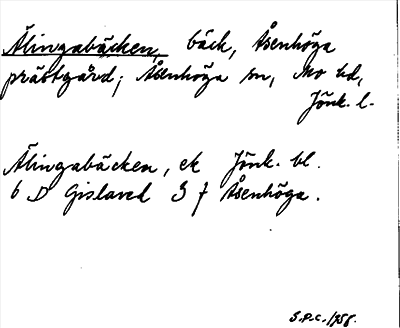 Älingabäcken, bäck, Åsenhöga
prästgård; Åsenhöga sn, Mo hd,
Jönk. l.
Älingabäcken, ek Jönk. bl.
6 D Gislaved 3 f Åsenhöga.
S.P.C. 1958.